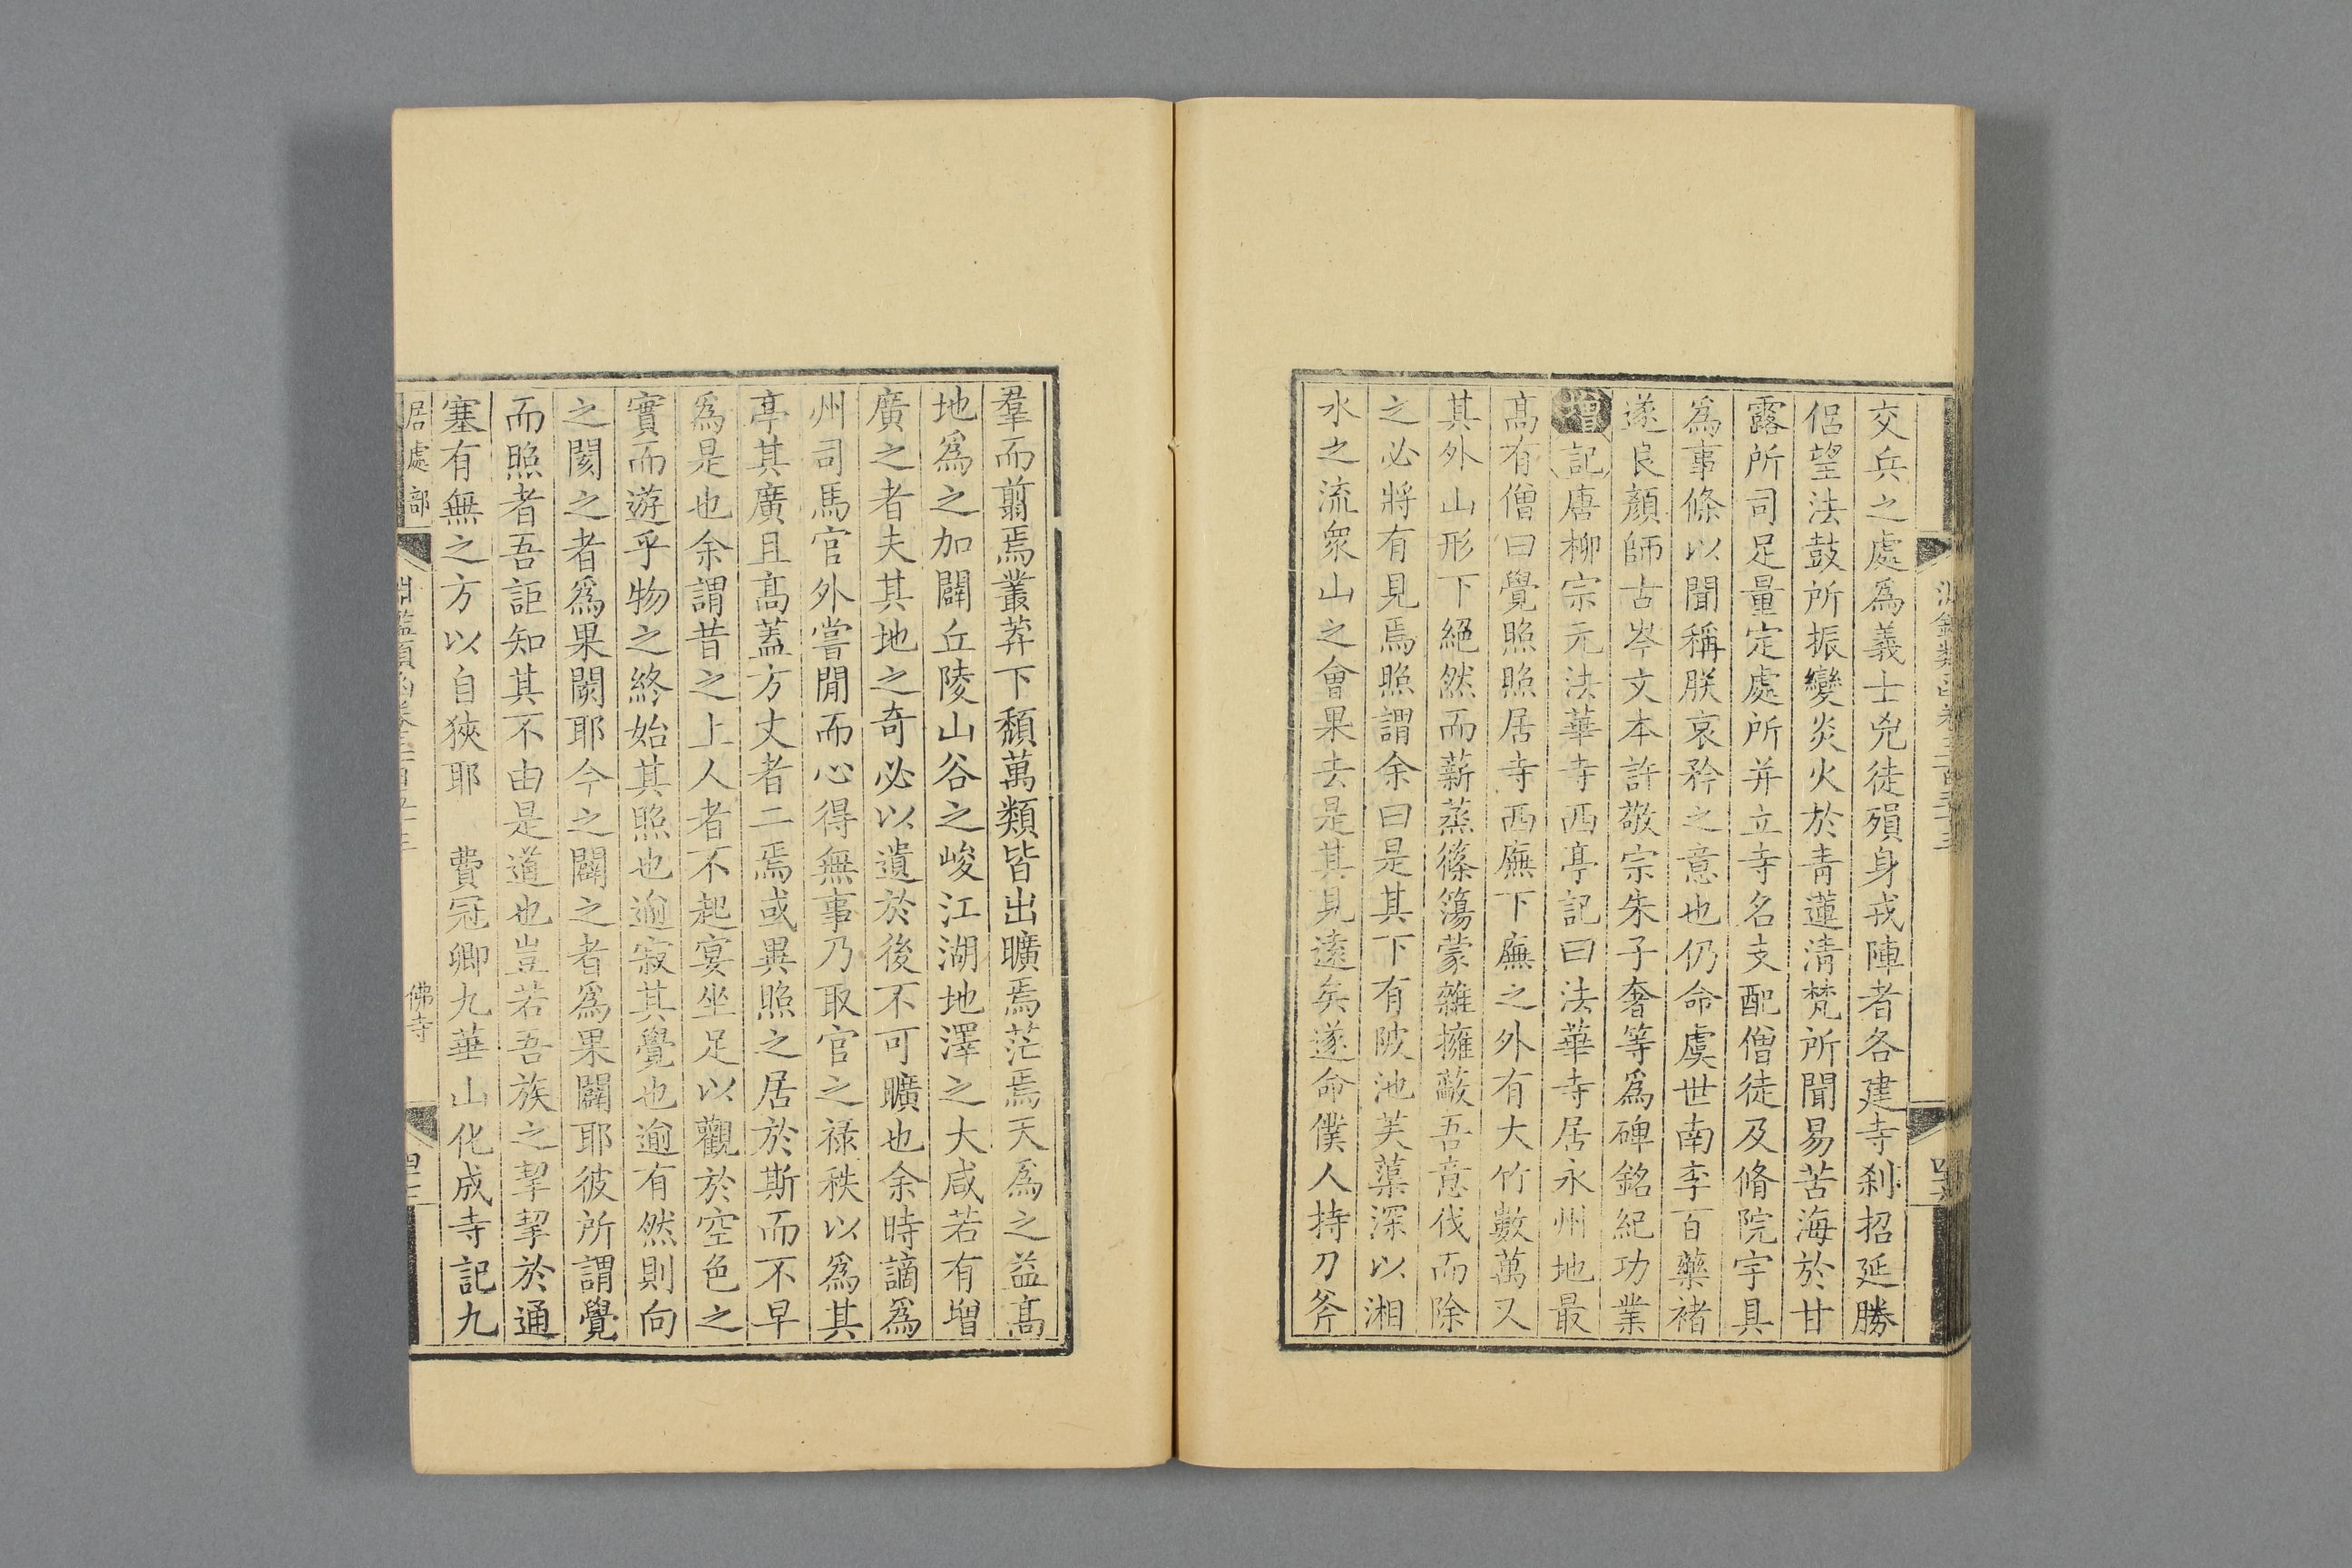 交兵之處爲義士兇徒殞身戎陣者各建寺刹招延勝
侶望法鼓所振變炎火於青蓮淸梵所聞易苦海於甘
露所司足量定處所并立寺名支配僧徒及脩院宇具
爲事條以聞稱朕哀矜之意也仍命虞世南李百藥褚
遂良顏師古岑文本許敬宗朱子奢等爲碑銘紀功業
增記唐柳宗元法華寺西亭記曰法華寺居永州地最
高有僧曰覺照照居寺西廡下廡之外有大竹數萬又
其外山形下絕然而薪蒸篠簜蒙雜擁蔽吾意伐而除
之必將有見焉照謂余曰是其下有陂池芙蕖深以湘
水之流衆山之會果去是其見遠矣遂命僕人持刀斧
羣而翦焉叢莽下頹萬類皆出曠焉茫焉天爲之益高
地爲之加闢丘陵山谷之峻江湖地澤之大咸若有增
廣之者夫其地之奇必以遺於後不可曠也余時謫爲
州司馬官外嘗閒而心得無事乃取官之祿秩以爲其
亭其廣且高蓋方丈者二焉或異照之居於斯而不早
爲是也余謂昔之上人者不起宴坐足以觀於空色之
實而遊乎物之終始其照也逾寂其覺也逾有然則向
之閡之者爲果閡耶今之闢之者爲果闢耶彼所謂覺
而照者吾詎知其不由是道也豈若吾族之挈挈於通
塞有無之方以自狹耶　費冠卿九華山化成寺記九
居處部
佛寺